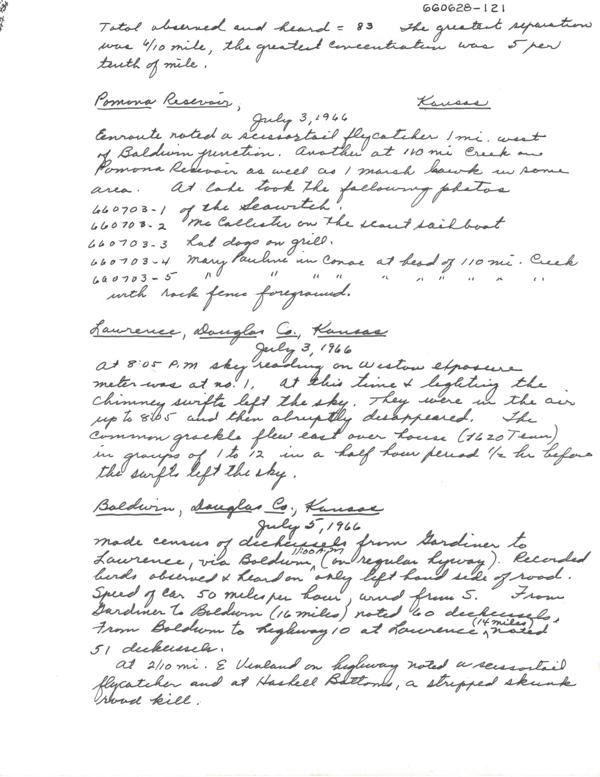 660628-121
Total observed and heard = 83 The greatest separation
was 4/10 mile, the greatest concentration was 5 per
tenth of mile.
Pomona Reservoir, Kansas
July 3, 1966
Enroute noted a scissortail flycatcher 1 mi. west
of Baldwin junction. Another at 110 mi Creek on
Pomona Reservoir as well as 1 marsh hawk in same
area. At lake took the following photos
660703-1 of the Seawitch.
660703-2 McCallister on the scout sailboat
660703-3 hot dogs on grill.
660703-4 Mary Pauline in canoe at head of 110 mi. Creek
660703-5 " " " " " " " " "
with rock fence foreground.
Lawrence, Douglas Co., Kansas
July 3, 1966
At 8:05 P.M sky reading on Weston exposure
meter was at no. 1, At this time & lighting the
chimney swifts left the sky. They were in the air
up to 8:05 and then abruptly disappeared. The
common grackle flew east over house (1620 Tenn)
in groups of 1 to 12 in a half hour period 1/2 hr before
the swifts left the sky.
Baldwin, Douglas Co., Kansas
July 5, 1966
made census of dickcissels from Gardiner to
Lawrence, via Baldwin 11:00 A.M (on regular hyway). Recorded
birds observed & heard on only left hand side of road.
Speed of car 50 miles per hour, wind from S. From
Gardiner to Baldwin (16 miles) noted 60 dickcissels,
From Baldwin to highway 10 at Lawrence (14 miles) noted
51 dickcissels.
At 2/10 mi. E Vinland on highway noted a scissortail
flycatcher and at Haskell Bottoms, a stripped skunk
road kill.